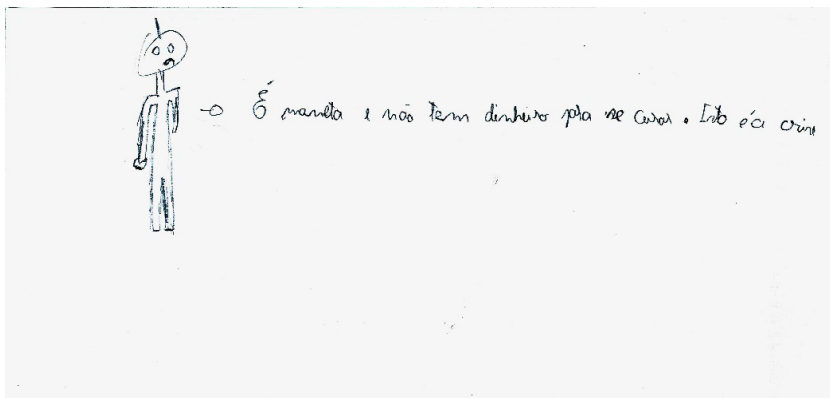 É maneta e não tem dinheiro para se curar. Isto é a crise